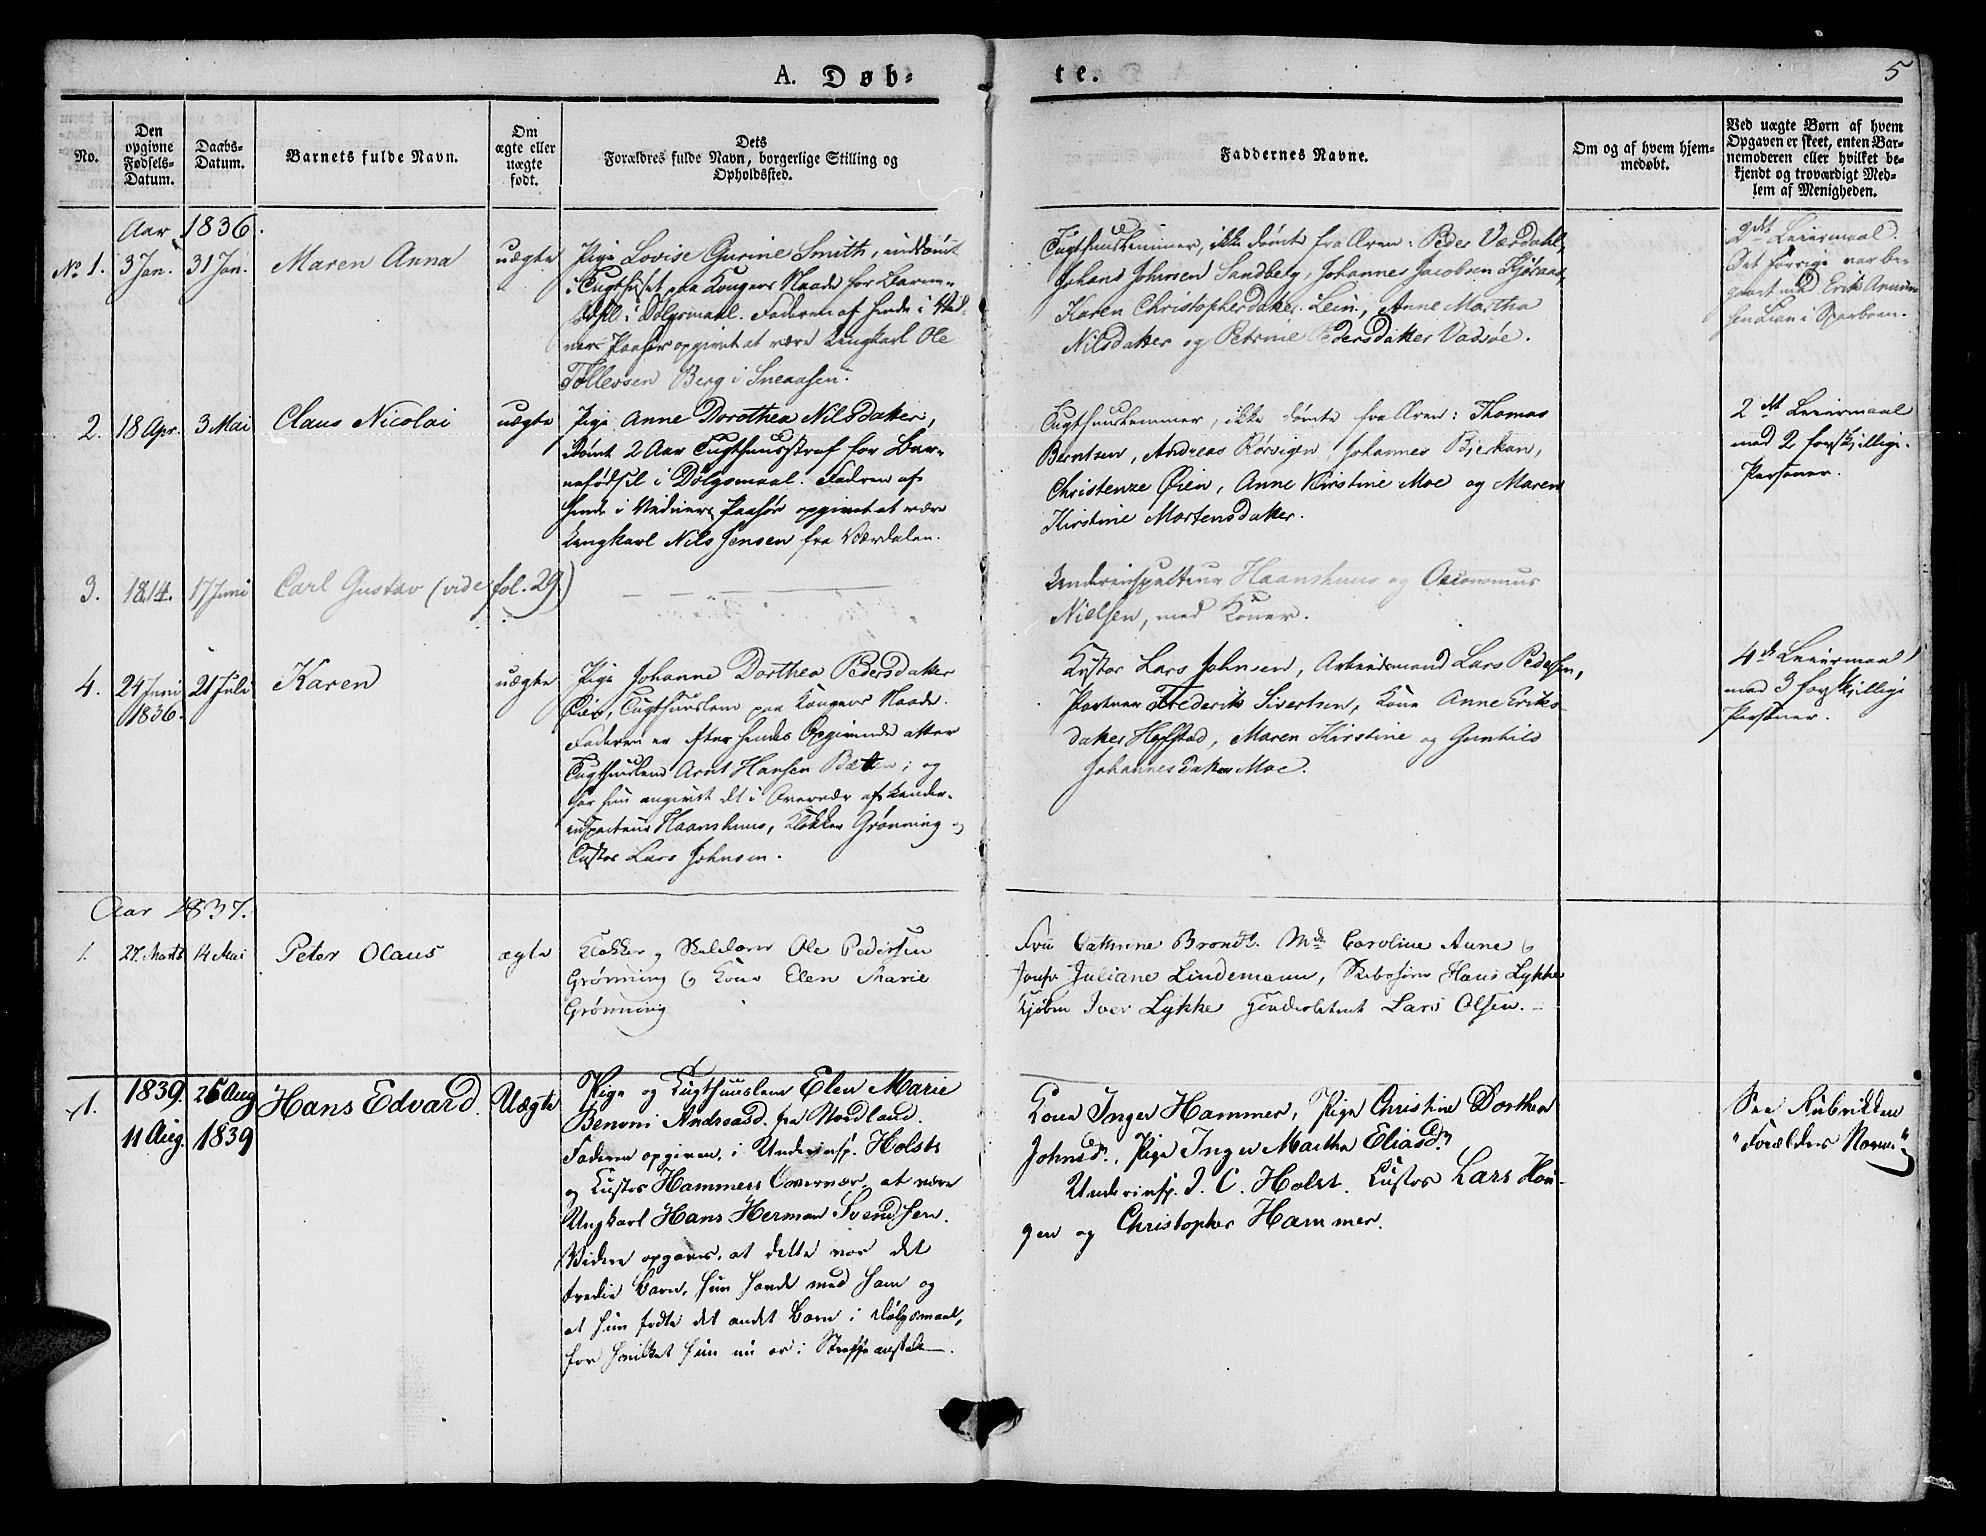 A. Døb-
te.
5
No.
Den opgivne Fødsels-Datum.
Daabs-Datum.
Barnets fulde Navn.
Om ægte eller uægte født.
Dets
Forældres fulde Navn, borgerlige Stilling og
Opholdssted.
Faddernes Navne.
Om og af hvem hjem-
medøbt.
Ved uægte Børn af hvem
Opgaven er skeet, enten Bar-
nemoderen eller hvilket be-
kjendt og troværdigt Med-
lem af Menigheden.
Aar 1836.
No 1. 3 Jan. 31 Jan. Maren Anna uægte
Pige Lovise Gurine Smith, inddømt
i Tugthuset paa Kongens Naade for Barne-
fødsel i Dølgsmaal. Faderen af hende i Vid-
ners Paahør opgivet at være Ungkarl Ole
Tollevsen Berg i Sneaasen.
Tugthuuslemmer, ikke dømte fra Æren: Peder Værdahl,
Johans Johnsen Sandberg, Johannes Jacobsen
Karen Christophersdatter Lein, Anne Martha
Nilsdatter og Petrine Pedersdatter Vadsøe.
2det Leiermaal.
Det forrige var be-
gaaet med Erik
i Sparboen.
2. 18 Apr. 3 Mai Claus Nicolai uægte
Pige Anne Dorothea Nilsdatter,
dømt 2 Aar Tugthuusstraf for Bar-
nefødsel i Dølgsmaal. Faderen af
hende i Vidners Paahør opgivet at være
Ungkarl Nils Jensen fra Værdalen.
Tugthuuslemmer, ikke dømte fra Æren: Thomas
Berntsen, Andreas Rørvigen, Johannes Bjerkan,
Christenze Øien, Anne Kirstine Moe og Maren
Kirstine Mortensdatter.
2det Leiermaal
med 2 forskjellige
Personer.
3. 1814. 17 Juni Carl Gustav (vide fol. 29.)
Underinspecteur Haanshuus og Oeconomus
Nielsen, med Koner.
4. 24 Juni 1836. 21 Juli Karen uægte
Pige Johanne Dorthea Pedersdatter
Øien, Tugthuuslem paa Kongens Naade.
Faderen er efter hendes Opgivende atter
Tugthuuslem Arnt Hansen Bætten; og
har hun angivet det i Overvær af Under-
inspecteur Haanshuus, Klokker Grønning og
Custos Lars Johnsen.
Custos Lars Johnsen, Arbeidsmand Lars Pedersen,
Portner Frederik Sivertsen, Kone Anne Eriks-
datter Hofstad, Maren Kirstine og Gunhild
Johannesdatter Moe.
4de Leiermaal
med 3 forskjellige
Personer.
Aar 1837.
1. 27. Marts 14 Mai Peter Olaus ægte
Klokker og Skolelærer Ole Pedersen
Grønning og Kone Elen Marie
Grønning
Fru Cathrine Brandt. Md. Caroline Aune og
Jomfr Juliane Lindemann, Hans Lykke
Kjøbm Iver Lykke Lars Olsen.
1. 1839. 11 Aug. 25 Aug 1839 Hans Edvard. Uægte
Pige og Tugthuuslem Elen Marie
Benoni Andreasd. fra Nordland.
Faderen opgiven, i Underinsp. Holsts
og Custos Hammers Overvær, at være
Ungkarl Hans Herman Svendsen.
Videre opgaves, at dette var det
tredie Barn, hun havde med ham og
at hun fødte det andet Barn i Dølgsmaal,
for hvilket hun nu er i Strafanstalten.
Kone Inger Hammer, Pige Christine Dorthea
Johnsd., Pige Inger Martha Eliasdr
Underinsp. J. C. Holst. Custos Lars Hau-
gen og Christopher Hammer.
See Rubrikken
"Forældres Navne"